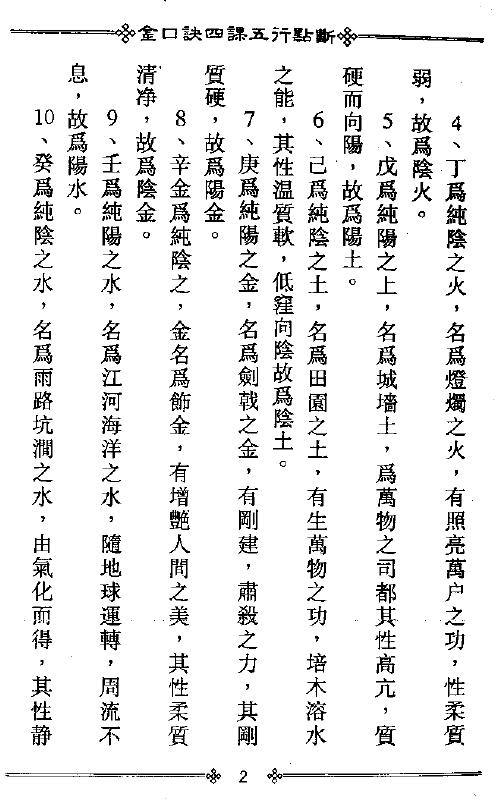 金口訣四課五行點斷
4、丁爲純陰之火，名爲燈燭之火，有照亮萬户之功，性柔質
弱，故爲陰火。
5、戊爲純陽之上，名爲城墻土，爲萬物之司都其性高亢，質
硬而向陽，故爲陽土。
6、己爲純陰之土，名爲田園之土，有生萬物之功，培木溶水
之能，其性温質軟，低窪向陰故爲陰土。
7、庚爲純陽之金，名爲劍戟之金，有剛建，肅殺之力，其剛
質硬，故爲陽金。
8、辛金爲純陰之，金名爲飾金，有增艷人間之美，其性柔質
清净，故爲陰金。
9、壬爲純陽之水，名爲江河海洋之水，隨地球運轉，周流不
息，故爲陽水。
10、癸爲純陰之水，名爲雨路坑澗之水，由氣化而得，其性静
2